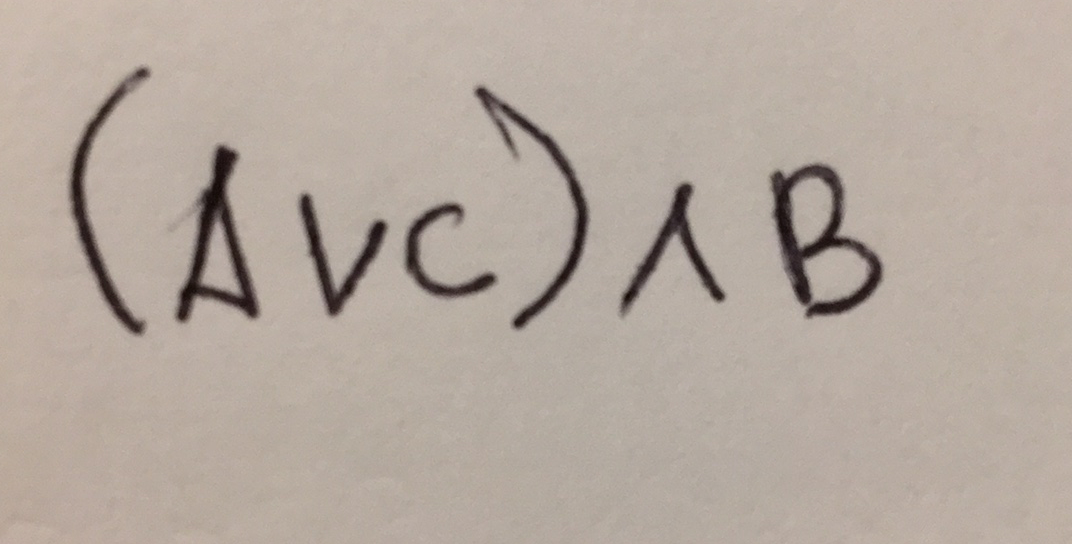 (A∨C)∧B